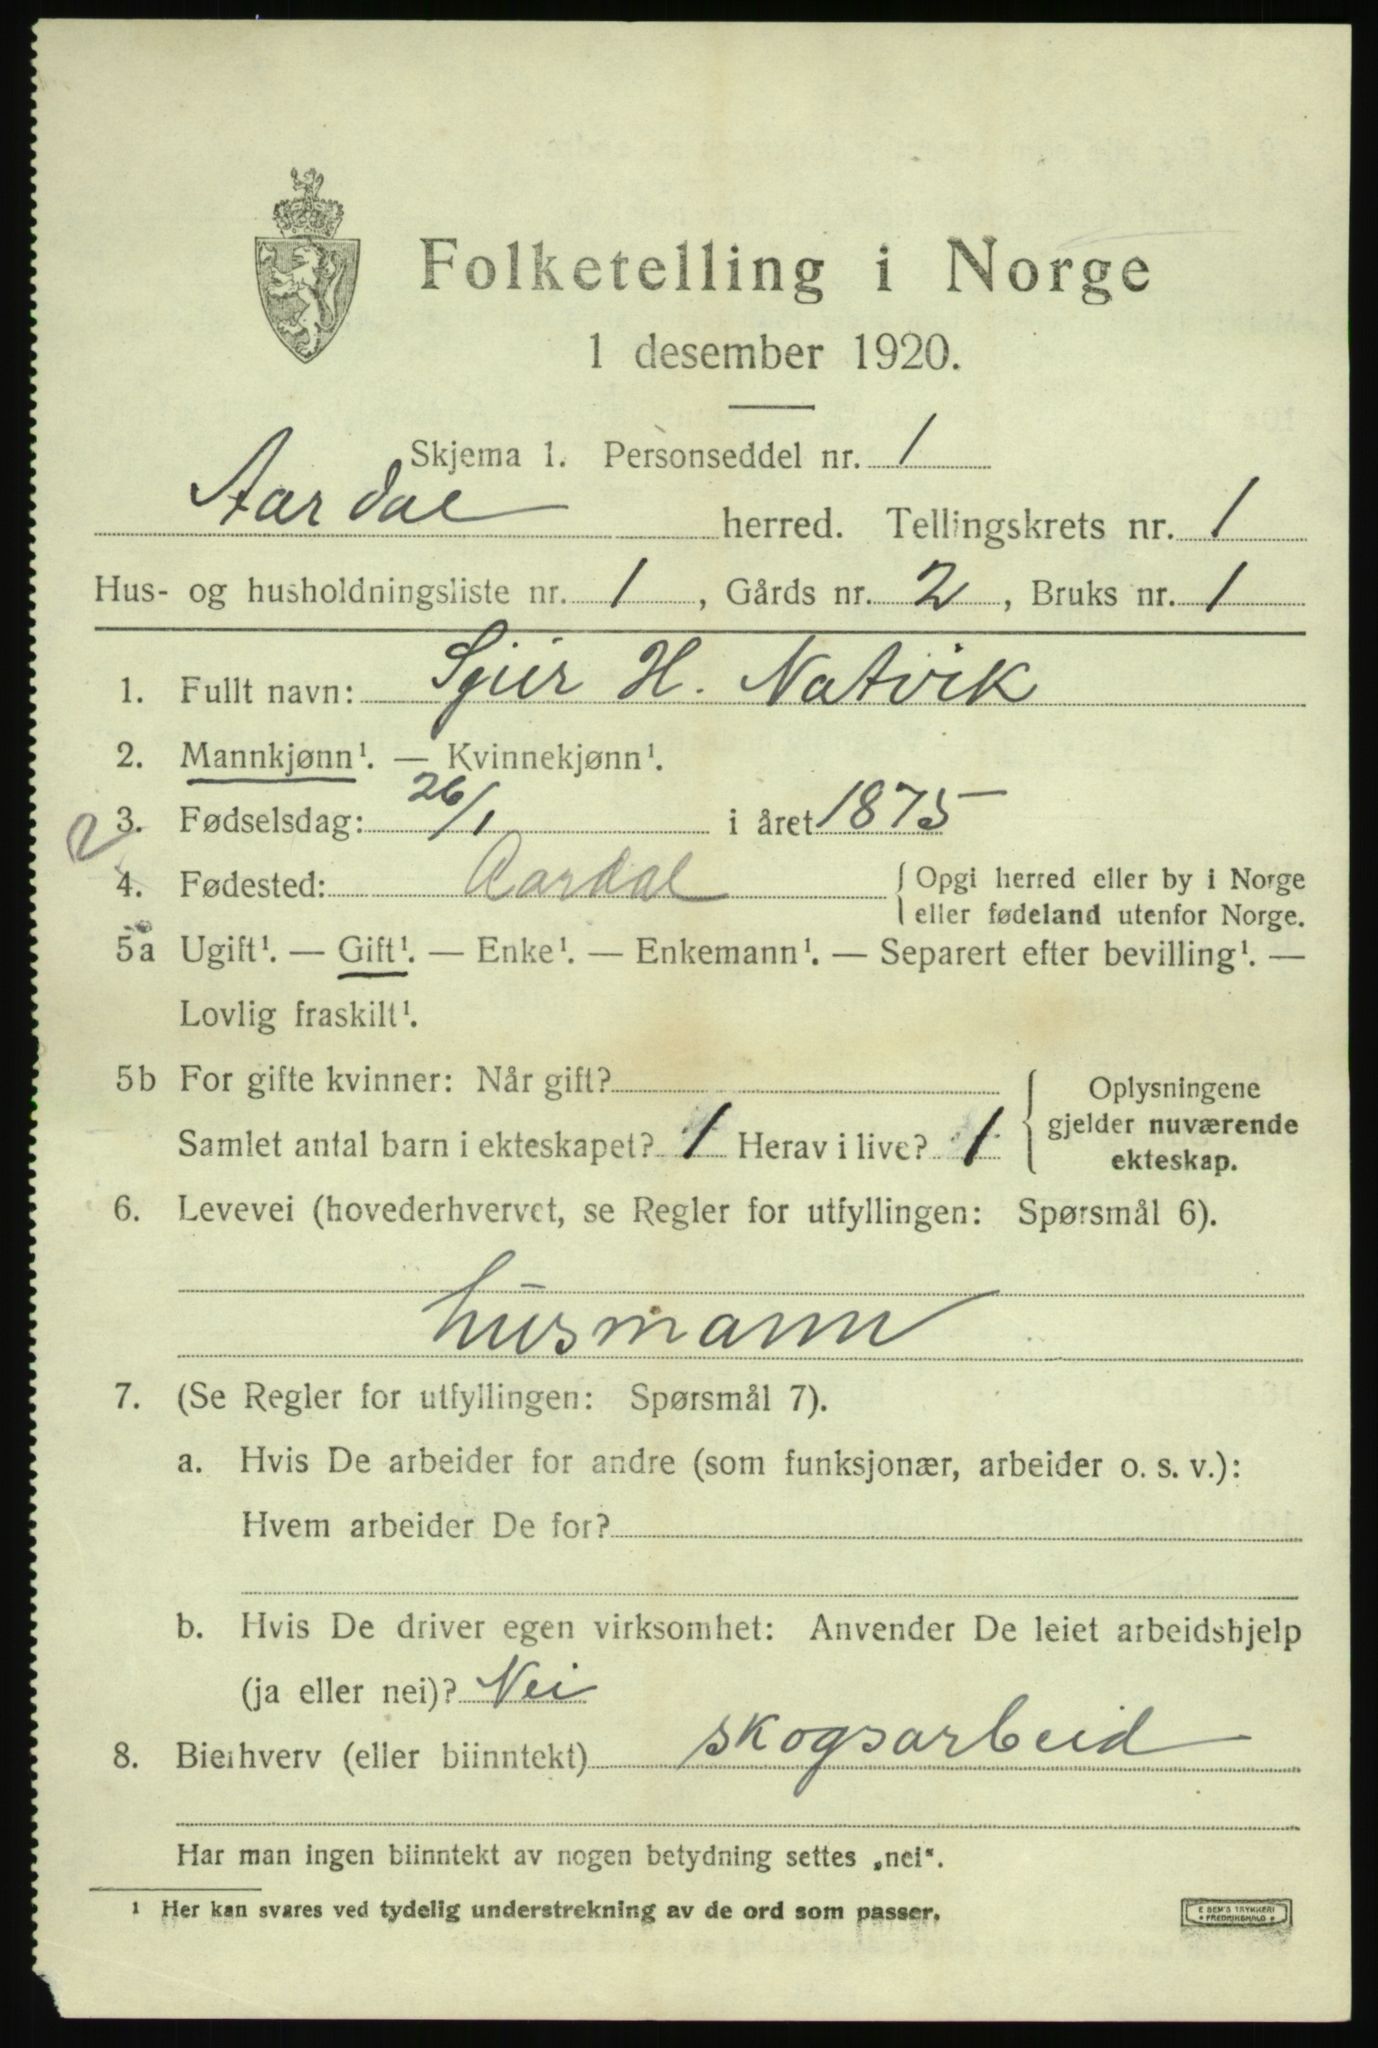 Folketelling i Norge
1 desember 1920.
Skjema 1. Personseddel nr. 1
Aardal herred. Tellingskrets nr. 1
Hus- og husholdningsliste nr. 1, Gårds nr. 2, Bruks nr. 1
1. Fullt navn: H. Natvik
2. Mannkjønn¹. — Kvinnekjønn¹.
3. Fødselsdag: 26/1 i året 1875
2
4. Fødested: Aardal { Opgi herred eller by i Norge
eller fødeland utenfor Norge.
5a Ugift¹. — Gift¹. — Enke¹. — Enkemann¹. — Separert efter bevilling¹. —
Lovlig fraskilt¹.
5b For gifte kvinner: Når gift?
Samlet antal barn i ekteskapet? 1 Herav i live? 1
Oplysningene
gjelder nuværende
ekteskap.
6. Levevei (hovederhvervet, se Regler for utfyllingen: Spørsmål 6).
husmann
7. (Se Regler for utfyllingen: Spørsmål 7).
a. Hvis De arbeider for andre (som funksjonær, arbeider o. s. v.):
Hvem arbeider De for?
b. Hvis De driver egen virksomhet: Anvender De leiet arbeidshjelp
(ja eller nei)? Nei
8. Bierhverv (eller biinntekt) skogsarbeid
Har man ingen biinntekt av nogen betydning settes „nei“.
¹ Her kan svares ved tydelig understrekning av de ord som passer.
E SEM'S TRYKKERI
FREDRIKSHALD